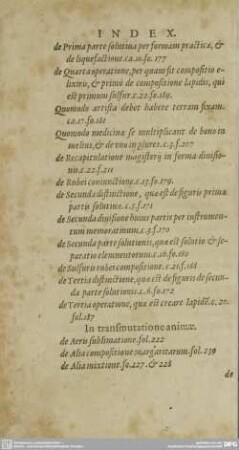 INDEX.
de Prima parte solutiua per formam practicæ, &
de liquefactione.ca.10.fo.177
de Quarta operatione, per quam fit compositio e-
lixiris, & primò de compositione lapidis, qui
est primum sulfur.c.22.fo.189.
Quomodo artista debet habere terram fixam.
ca.17.fo.181
Quomodo medicinæ se multiplicant de bono in
melius, & de vno in plures.c.3.f.207
de Recapitulatione magisterij in forma diuisio-
nis.c.22.f.211
de Rubei coniunctione.c.13.fo.179.
de Secunda distinctione, quæ est de figuris primæ
partis solutiuæ.c.5.f.171
de Secunda diuisione huius partis per instrumen-
tum memoratiuum.c.3.f.170
de Secunda parte solutionis, quæ est solutio & se-
paratio elementorum.c.18.fo.182
de Sulfuris rubei compositione.c.21.f.188
de Tertia distinctione, quæ est de figuris de secun-
da parte solutionis.c.6.fo.172
de Tertia operatione, quæ est creare lapidẽ.c.20.
fol.187
In transmutatione animæ.
de Aeris sublimatione.fol.222
de Alia compositione margaritarum.fol.239
de Alia mixtione.fo.227.& 228
de